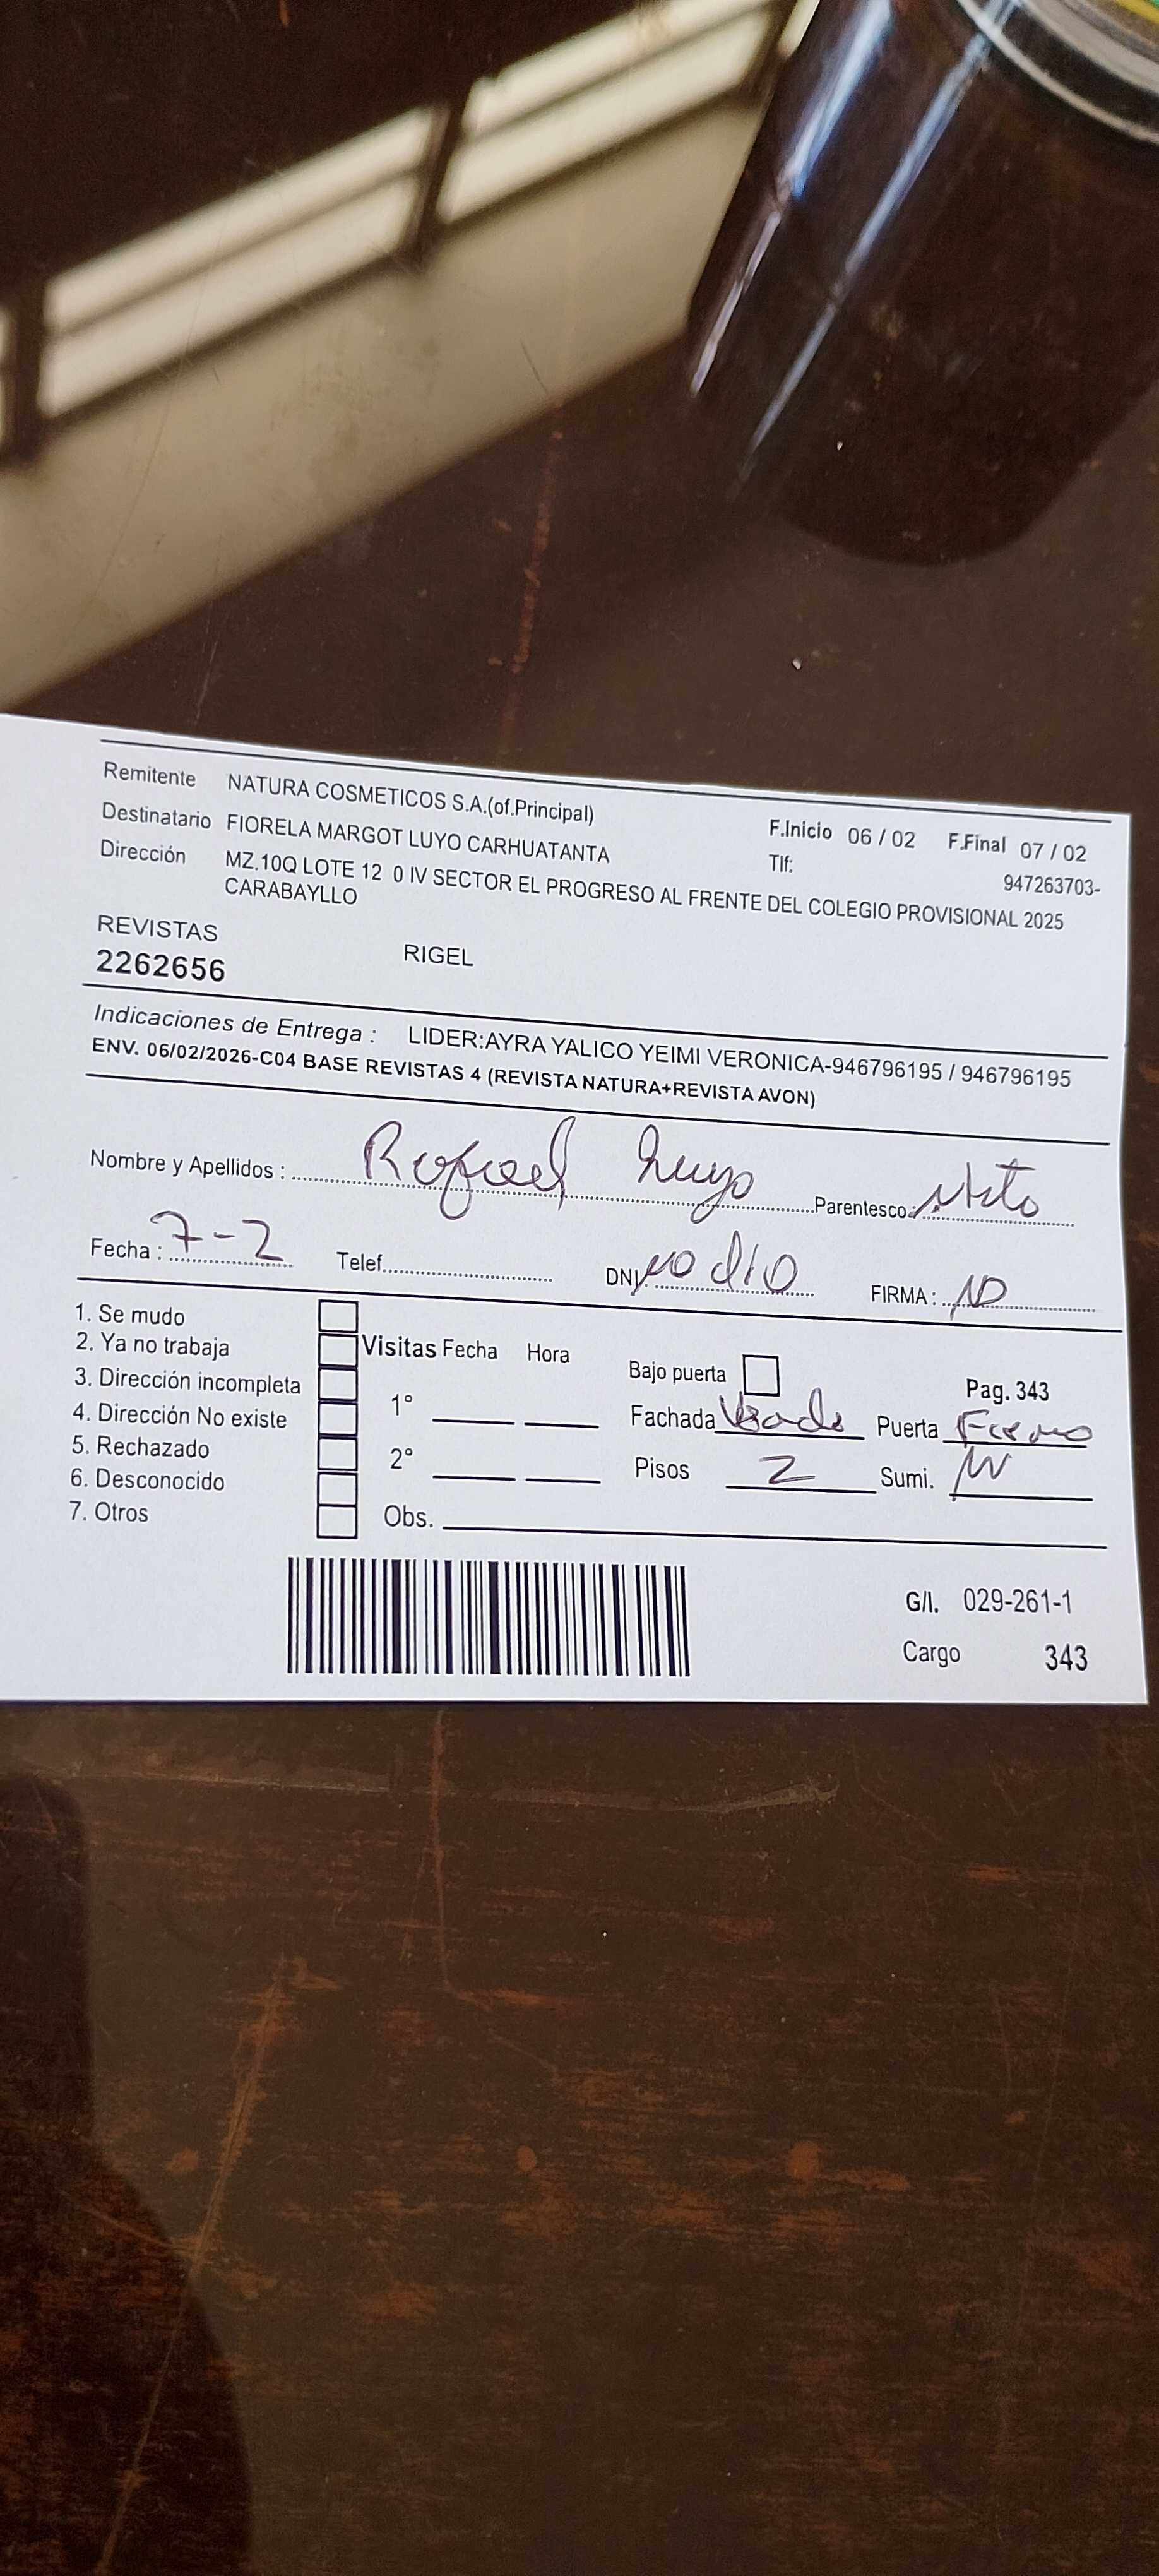 Remitente NATURA COSMETICOS S.A.(of.Principal)
F.Inicio 06 / 02 F.Final 07 / 02
Destinatario FIORELA MARGOT LUYO CARHUATANTA
Tlf: 947263703-
Dirección MZ.10Q LOTE 12 0 IV SECTOR EL PROGRESO AL FRENTE DEL COLEGIO PROVISIONAL 2025
CARABAYLLO
REVISTAS
2262656 RIGEL
Indicaciones de Entrega : LIDER:AYRA YALICO YEIMI VERONICA-946796195 / 946796195
ENV. 06/02/2026-C04 BASE REVISTAS 4 (REVISTA NATURA+REVISTA AVON)
Nombre y Apellidos : Rafael Luyo Parentesco: Nieto
Fecha : 7-2 Telef. DNI. no dio FIRMA :
1. Se mudo
2. Ya no trabaja
3. Dirección incompleta
4. Dirección No existe
5. Rechazado
6. Desconocido
7. Otros
Visitas Fecha Hora
1°
2°
Obs.
Bajo puerta
Pag. 343
Fachada Puerta Fierro
Pisos 2 Sumi.
G/I. 029-261-1
Cargo 343